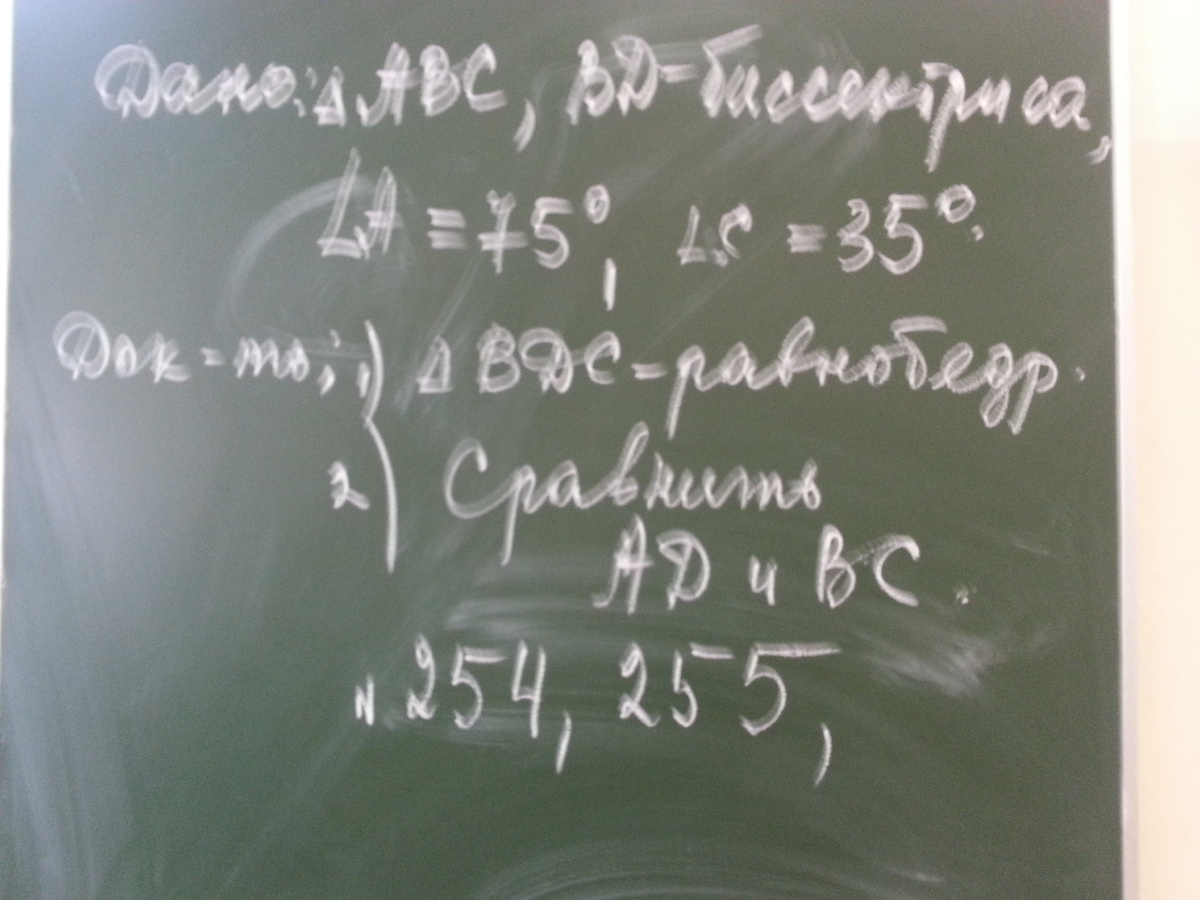 Дано: △ABC, BD-биссектриса,
∠A = 75°, ∠C = 35°.
Док-ть: 1) △BDC-равнобедр.
2) Сравнить
AD и BC.
N 254, 255,